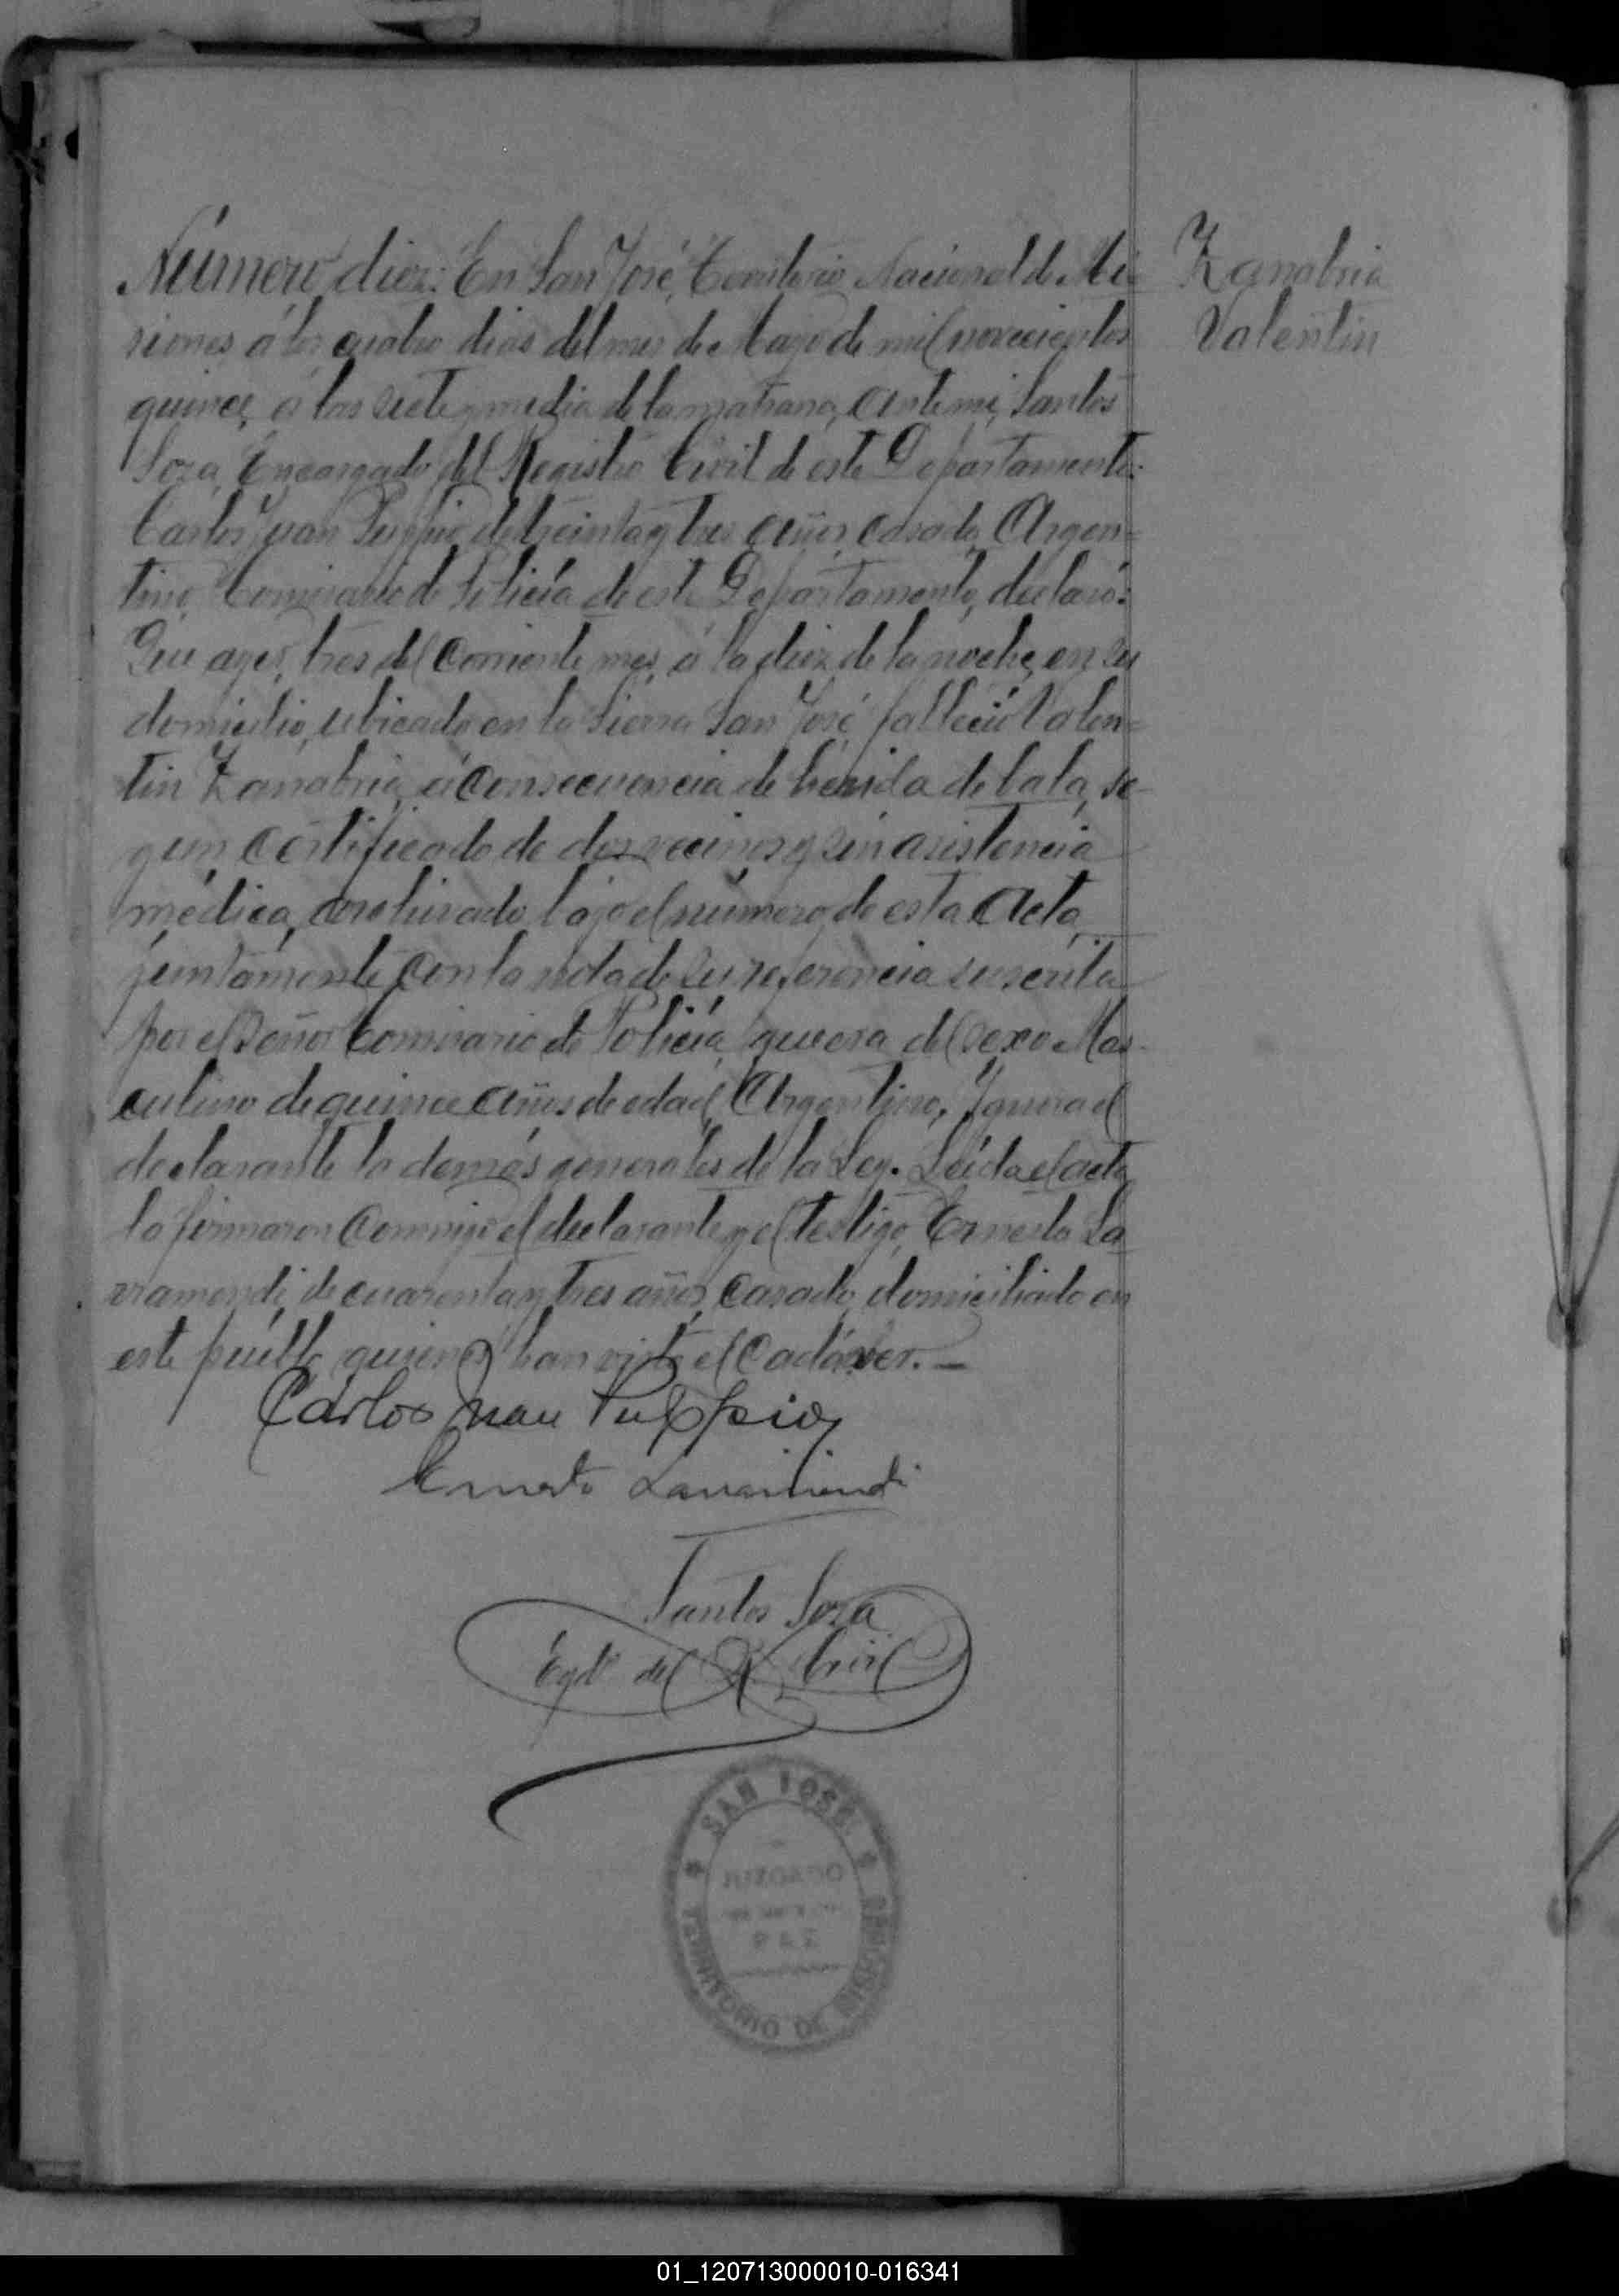 Número diez: En San José, Territorio Nacional de Mi-
siones, á los cuatro dias del mes de Mayo de mil novecientos
quince, á las siete y media de la mañana, ante mi, Santos
Soza, Encargado del Registro Civil de este Departamento:
Carlos Juan de treinta y tres años, casado, Argen=
tino, Comisario de Policía de este Departamento, declaró:
Que ayer, tres del corriente mes, á la diez de la noche, en su
domicilio, ubicado en la Sierra San José, falleció Valen=
tin Zanabria, á consecuencia de herida de bala, se-
gun certificado de dos vecinos y sin asistencia
médica, archivado bajo el número de esta acta,
juntamente con la nota de su referencia suscrita
por el Señor Comisario de Policía, que era del sexo Mas-
culino de quince años de edad, Argentino, Ignora el
declarante la demás generales de la Ley. Leida el acta
la firmaron conmigo el declarante y el testigo, Ernesto La
rramendi, de cuarenta y tres años, casado, domiciliado en
este pueblo, quienes han visto el Cadáver. —
Zanabria
Valentin
Carlos Juan
Ernesto Larramendi
Santos Soza
Egdo del R. Civil
SAN JOSE
JUZGADO
DE
PAZ
TERRITORIO DE MISIONES
01_120713000010-016341